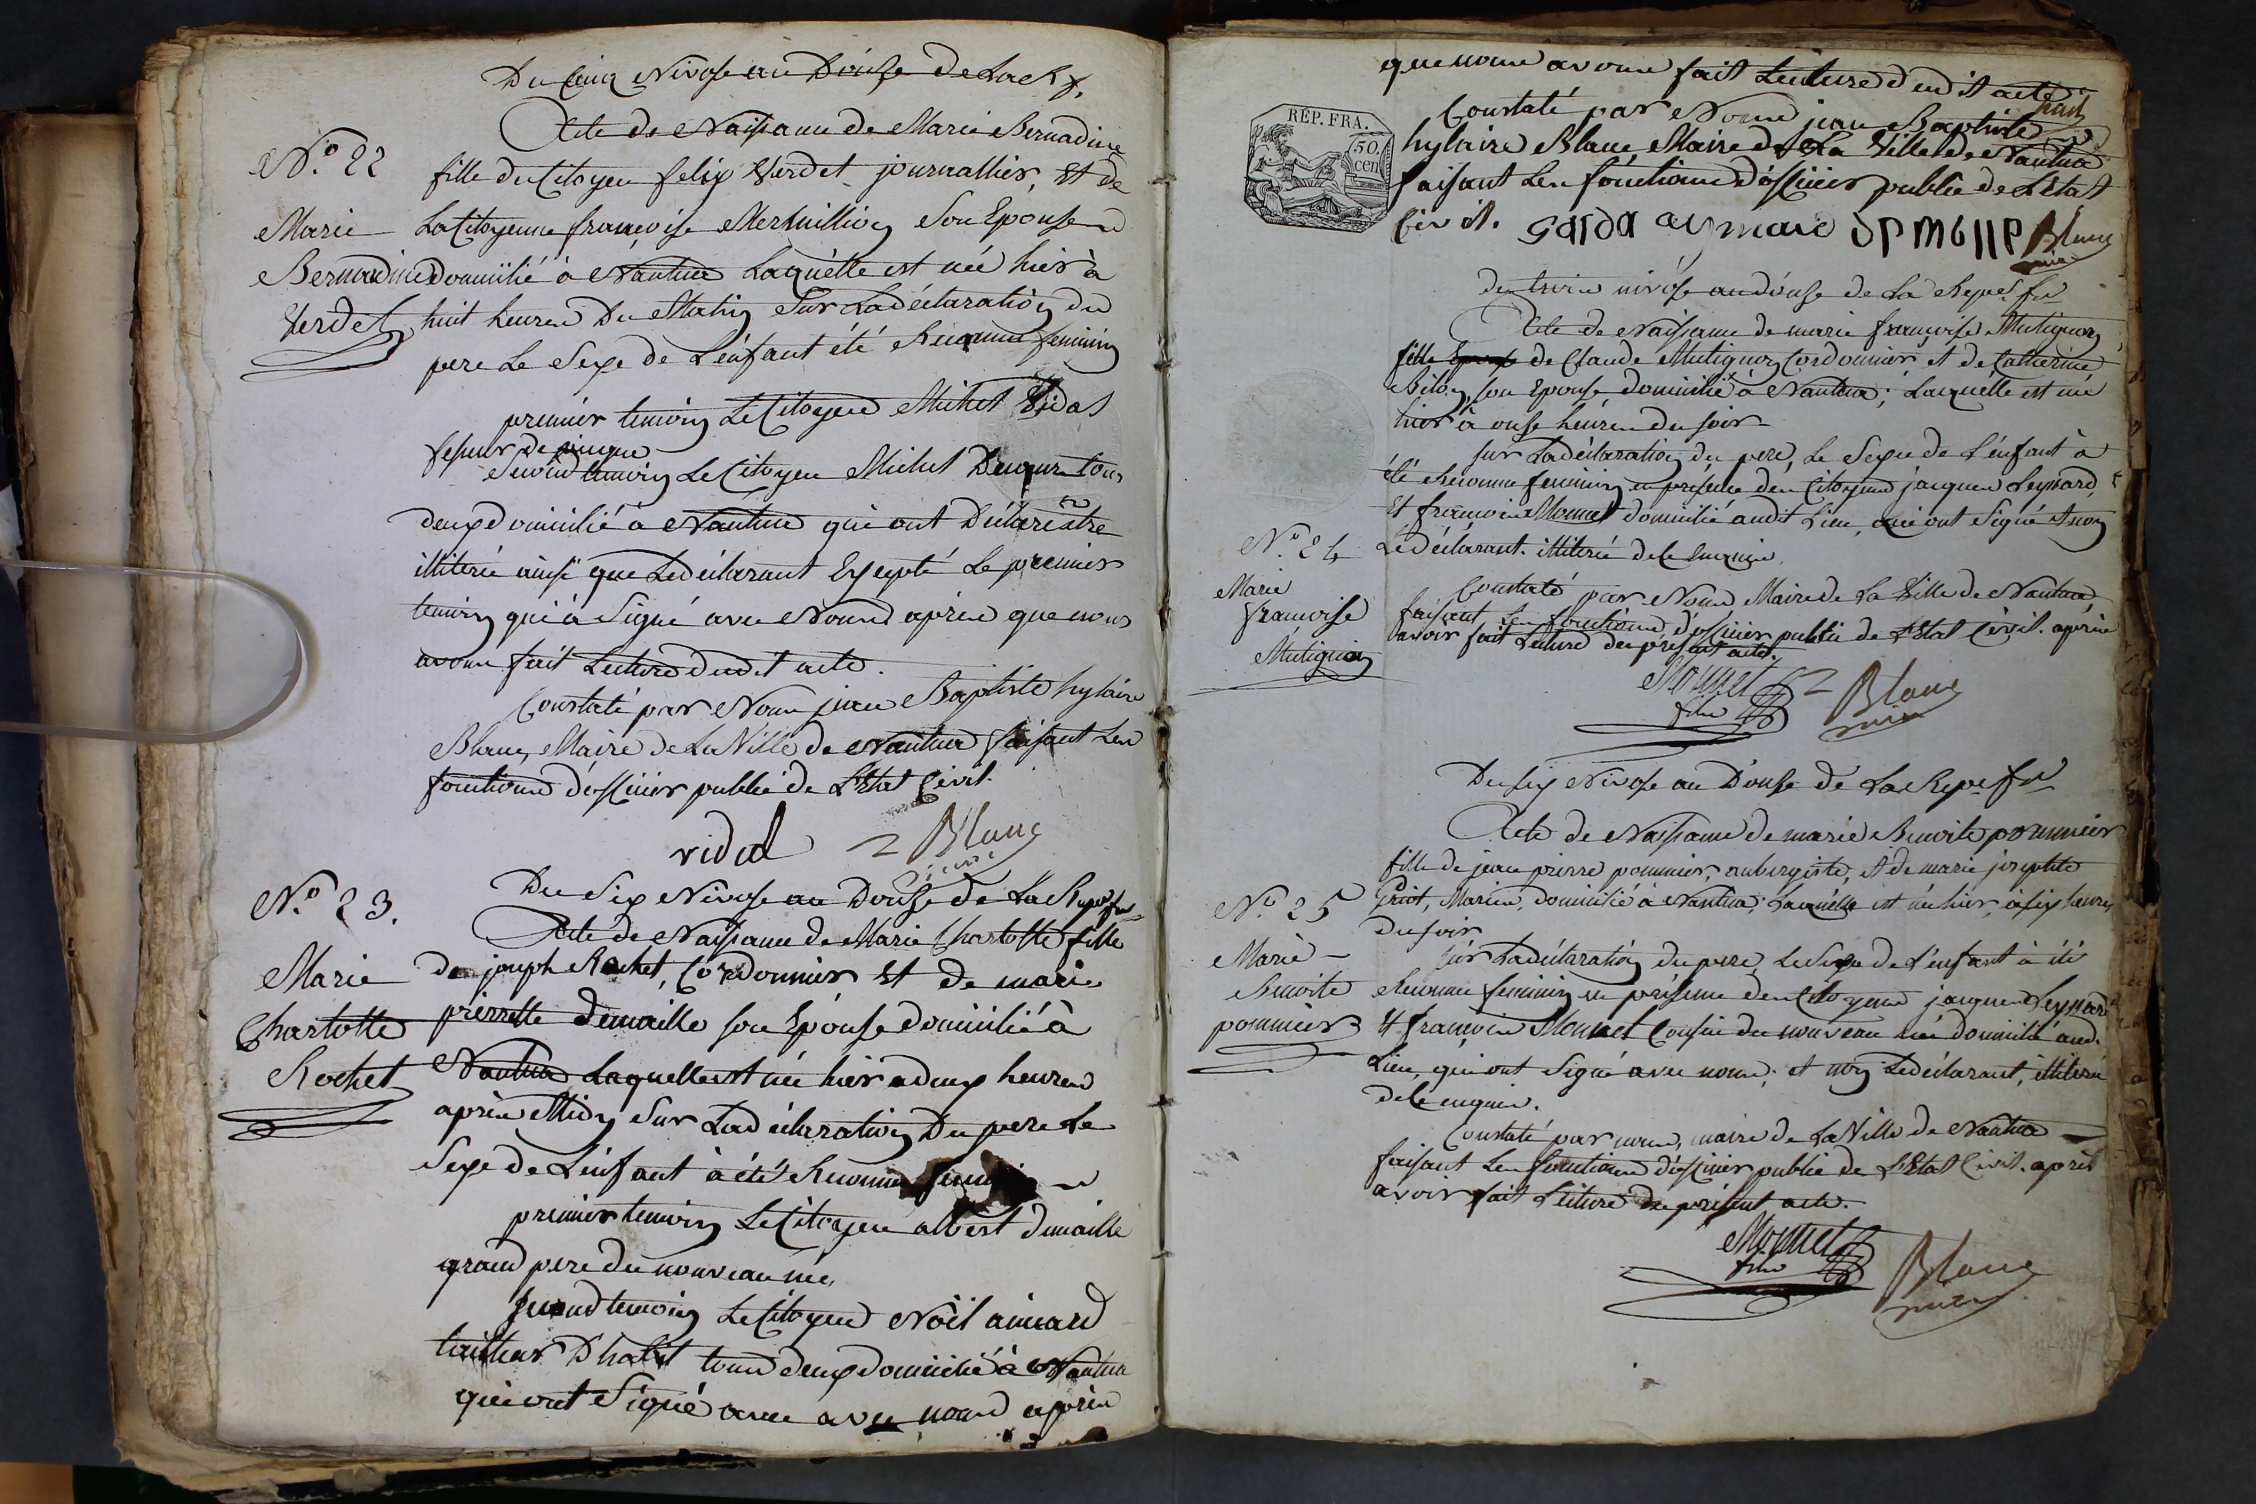 Du Cinq Nivose an Douze de La R. f.
Acte de Naissance de Marie Bernadine
N.º 22
fille du Citoyen felix Verdet journallier, Et de
Marie
La Citoyenne françoise Mermillion Son Epouse
Bernadine
domicilié à Nantua Laquelle est née hier à
Verdet
huit heures Du Matin Sur La déclaration du
pere Le Sexe de L'enfant été Reconnu feminin
premier temoin Le Citoyen Michel Vidal
feseur de peigne
Second temoin Le Citoyen Michel tous
deux domicilié à Nantua qui ont Déclaré être
illiteré ainsi que Le déclarant Excepté Le premier
temoin qui à Signé avec Nous après que nous
avons fait Lecture dudit acte.
Constaté par Nous jean Baptiste hylaire
Blanc, Maire de La Ville de Nantua faisant Les
fonctions d'officier public de L'Etat Civil.
vidal Blanc
maire
N.º 23.
Du Six Nivose an Douze de La Rep. fr.
Acte de Naissance de Marie Charlotte fille
Marie
de joseph Rochet, Cordonnier Et de marie
Charlotte
pierrette Demaille son Epouse domicilié à
Rochet
Nantua Laquelle est née hier a deux heures
après Midy Sur La déclaration Du pere Le
Sexe de L'enfant à été Reconnu feminin
premier temoin Le Citoyen albert Demaille
grand pere du nouveau né,
Second temoin Le Citoyen Noël aimard
tailleur D'habit tous deux domicilié à Nantua
qui ont Signé avec avec nous après
que nous avons fait Lecture dudit acte
REP. FRA.
50.
cen
Constaté par Nous jean Baptiste
hylaire Blanc Maire de La Ville de Nantua
faisant Les fonctions d'officier public de L'Etat
Civil. aymard Blanc
maire
du nivôse an douse de La Repu. fr
Acte de Naissance de marie françoise Mutignon
fille de Claude Mutignon Cordonnier, et de Catherine
son Epouse domicilié à Nantua; Laquelle est née
hier à onse heures du soir
sur La déclaration du pere, Le Sexe de L'enfant à
été Reconnu feminin en présence des Citoyens jacques Leynard,
Et françois Monnet domicilié audit Lieu, qui ont Signé et non
N.º 24
Le déclarant. illiteré de ce enquis.
Marie
françoise
Mutignon
Constaté par Nous Maire de La Ville de Nantua
faisant Les fonctions d'officier public de L'Etat Civil. après
avoir fait Lecture du présent acte.
Monnet
fils
Blanc
maire
Du six Nivose an Douse de La Rep. fr
Acte de Naissance de marie Benoite pommier
fille de jean pierre pommier, aubergiste, et de marie josephte
N.º 25
Mariés, domicilié à Nantua; Laquelle est née hier, à six heures
Du soir
Marie
Sur La déclaration du pere, Le Sexe de L'enfant à été
Benoite
Reconnu feminin en présence des Citoyens jacques Leynard
pommier
Et françois Monnet Cousin du nouveau né domicilié aud.
Lieu, qui ont Signé avec nous; et non Le déclarant, illiteré
de ce enquis.
Constaté par nous, maire de La Ville de Nantua
faisant Les fonctions d'officier public de L'Etat Civil. après
avoir fait Lecture du présent acte.
Monnet
fils
Blanc
maire